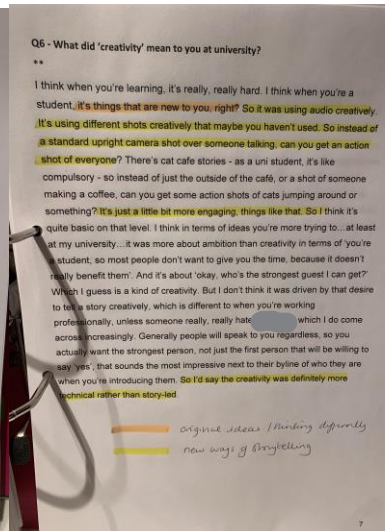 Q6 - What did 'creativity' mean to you at university?
**
I think when you're learning, it's really, really hard. I think when you're a
student, it's things that are new to you, right? So it was using audio creatively.
It's using different shots creatively that maybe you haven't used. So instead of
a standard upright camera shot over someone talking, can you get an action
shot of everyone? There's cat cafe stories - as a uni student, it's like
compulsory - so instead of just the outside of the café, or a shot of someone
making a coffee, can you get some action shots of cats jumping around or
something? It's just a little bit more engaging, things like that. So I think it's
quite basic on that level. I think in terms of ideas you're more trying to...at least
at my university...it was more about ambition than creativity in terms of 'you're
a student, so most people don't want to give you the time, because it doesn't
really benefit them'. And it's about 'okay, who's the strongest guest I can get?'
Which I guess is a kind of creativity. But I don't think it was driven by that desire
to tell a story creatively, which is different to when you're working
professionally, unless someone really, really hate which I do come
across increasingly. Generally people will speak to you regardless, so you
actually want the strongest person, not just the first person that will be willing to
say 'yes', that sounds the most impressive next to their byline of who they are
when you're introducing them. So I'd say the creativity was definitely more
technical rather than story-led.
original ideas / thinking differently
new ways of storytelling
7